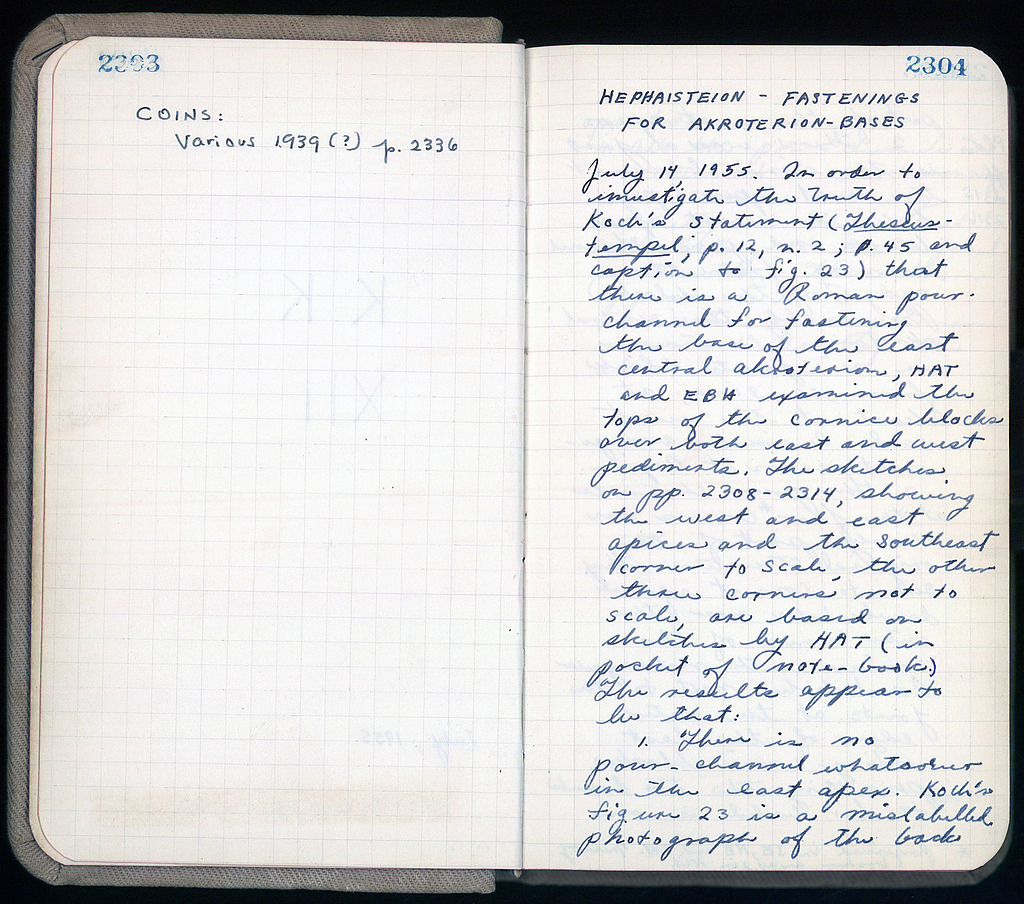 2303
COINS:
Various 1939 (?) p. 2336
2304
HEPHAISTEION - FASTENINGS
FOR AKROTERION-BASES
July 14, 1955. In order to
investigate the truth of
Koch's statement (Theseus-
tempel, p. 12, n. 2; p. 45 and
caption to fig. 23) that
there is a Roman pour-
channel for fastening
the base of the east
central akroterion, HAT
and EBH examined the
tops of the cornice blocks
over both east and west
pediments. The sketches
on pp. 2308-2314, showing
the west and east
apices and the southeast
corner to scale, the other
three corners not to
scale, are based on
sketches by HAT (in
pocket of note-book.)
The results appear to
be that:
1. There is no
pour-channel whatsoever
in the east apex. Koch's
figure 23 is a mislabelled
photograph of the back